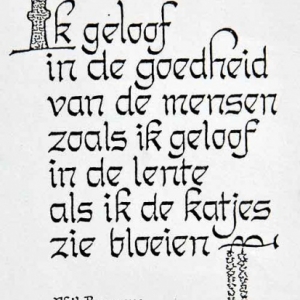 Ik geloof
in de goedheid
van de mensen
zoals ik geloof
in de lente
als ik de katjes
zie bloeien